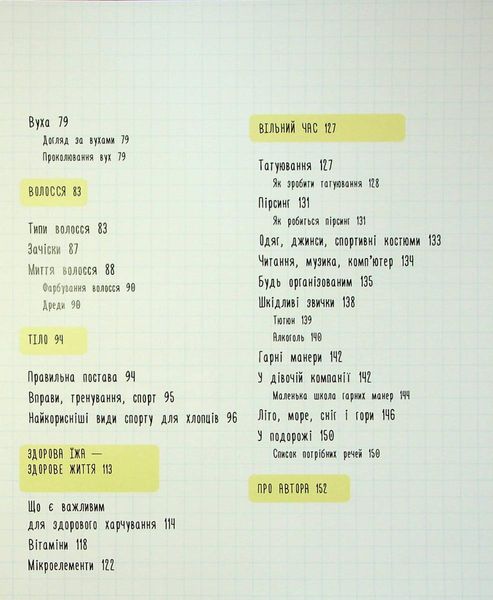 Вуха 79
Догляд за вухами 79
Проколювання вух 79
ВОЛОССЯ 83
Типи волосся 83
Зачіски 87
Миття волосся 88
Фарбування волосся 90
Дреди 90
ТІЛО 94
Правильна постава 94
Вправи, тренування, спорт 95
Найкорисніші види спорту для хлопців 96
ЗДОРОВА ЇЖА —
ЗДОРОВЕ ЖИТТЯ 113
Що є важливим
для здорового харчування 114
Вітаміни 118
Мікроелементи 122
ВІЛЬНИЙ ЧАС 127
Татуювання 127
Як зробити татуювання 128
Пірсинг 131
Як робиться пірсинг 131
Одяг, джинси, спортивні костюми 133
Читання, музика, комп'ютер 134
Будь організованим 135
Шкідливі звички 138
Тютюн 139
Алкоголь 140
Гарні манери 142
У дівочій компанії 142
Маленька школа гарних манер 144
Літо, море, сніг і гори 146
У подорожі 150
Список потрібних речей 150
ПРО АВТОРА 152